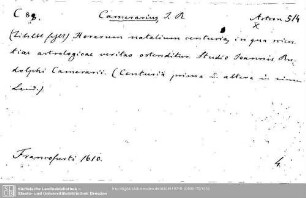 C 89. Camerarius J. R. Astron. 514
X
(Titelbl. fehlt) Horarum natalium centuria, in qua miri-
ficae astrologicae veritas ostenditur. Studio Joannis Ru-
dolphi Camerarii. (Centuria prima et altera in einem
Band.)
Francofurti 1610. 4.
Sächsische Landesbibliothek -
Staats- und Universitätsbibliothek Dresden